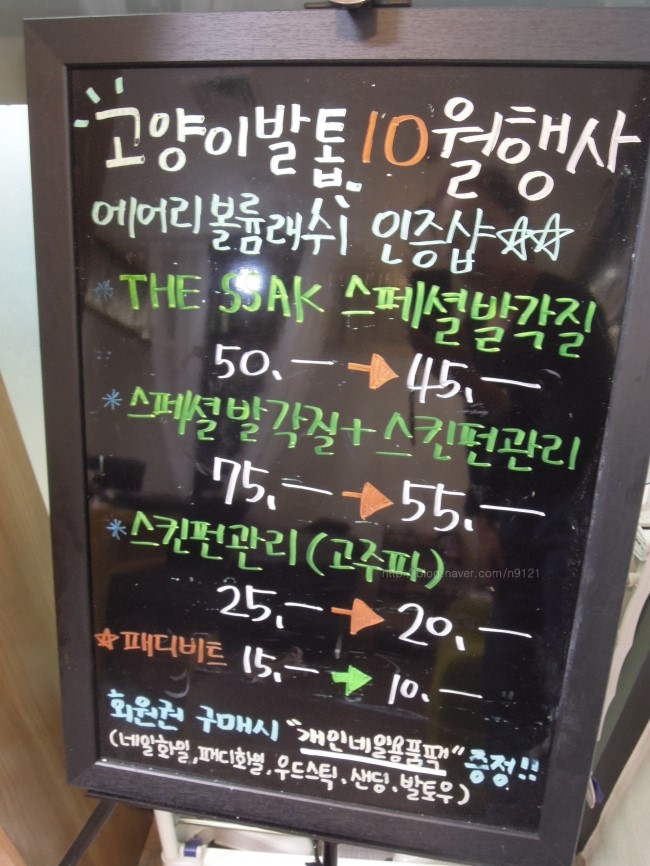 고양이발톱 10월행사
에어리볼륨래쉬 인증샵☆☆
* THE SSAK 스페셜발각질
50.— → 45.—
* 스페셜발각질+스킨펀관리
75.— → 55.—
* 스킨펀관리(고주파)
http://blog.naver.com/n9121
25.— → 20.—
☆패디비트 15.— → 10.—
회원권 구매시 "개인네일용품팩" 증정!!
(네일화일,패디화일,우드스틱.샌딩.발토우)